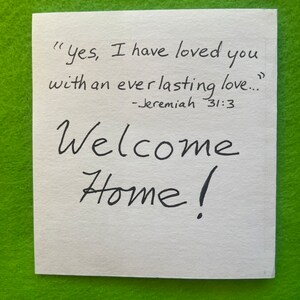 "Yes, I have loved you
with an everlasting love..."
-Jeremiah 31:3
Welcome
Home!